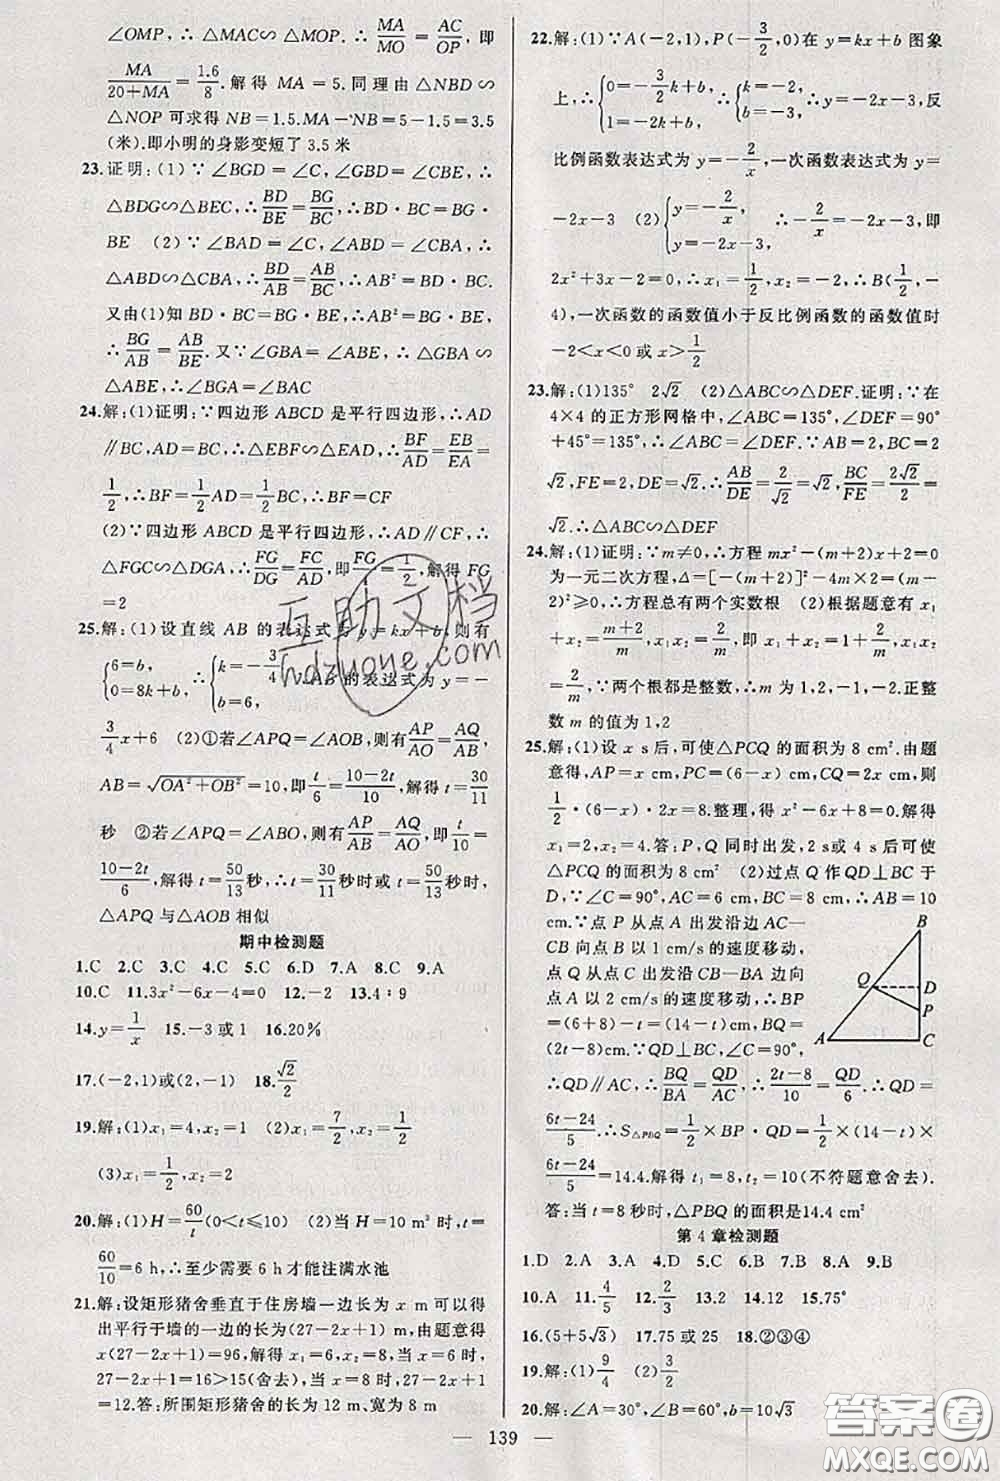 ∠OMP, ∴ △MAC∽△MOP. ∴ MA/MO = AC/OP, 即
MA/(20+MA) = 1.6/8. 解得 MA=5. 同理由△NBD∽
△NOP 可求得 NB=1.5. MA-NB=5-1.5=3.5
(米). 即小明的身影变短了 3.5 米
23. 证明:(1)∵∠BGD=∠C,∠GBD=∠EBC,∴
△BDG∽△BEC,∴ BD/BE = BG/BC,∴BD·BC=BG·
BE (2)∵∠BAD=∠C,∠ABD=∠CBA,∴
△ABD∽△CBA,∴ BD/AB = AB/BC,∴AB²=BD·BC.
又由(1)知 BD·BC=BG·BE,∴AB²=BG·BE,
∴ BG/AB = AB/BE. 又∵∠GBA=∠ABE,∴△GBA∽
△ABE,∴∠BGA=∠BAC
24. 解:(1)证明:∵四边形 ABCD 是平行四边形,∴AD
∥BC,AD=BC,∴△EBF∽△EAD,∴ BF/AD = EB/EA =
1/2,∴BF=1/2AD=1/2BC,∴BF=CF
(2)∵四边形 ABCD 是平行四边形,∴AD∥CF,∴
△FGC∽△DGA,∴ FG/DG = FC/AD,即 FG/4 = 1/2,解得 FG
=2
25. 解:(1)设直线 AB 的表达式为 y=kx+b,则有
{6=b, 0=8k+b, ∴ {k=-3/4, b=6, ∴AB 的表达式为 y=-
3/4x+6 (2)①若∠APQ=∠AOB,则有 AP/AO = AQ/AB,
AB=√(OA²+OB²)=10,即 t/6 = (10-2t)/10,解得 t=30/11
秒 ②若∠APQ=∠ABO,则有 AP/AB = AQ/AO,即 t/10 =
(10-2t)/6,解得 t=50/13秒,∴t=30/11秒时或 t=50/13秒时,
△APQ 与△AOB 相似
期中检测题
1.C 2.C 3.C 4.C 5.C 6.D 7.A 8.C 9.A
10.C 11.3x²-6x-4=0 12.-2 13.4∶9
14.y=1/x 15.-3 或 1 16.20%
17.(-2,1)或(2,-1) 18.√2/2
19.解:(1)x₁=4,x₂=1 (2)x₁=7/2,x₂=1/2
(3)x₁=1/2,x₂=2
20.解:(1)H=60/t(0<t≤10) (2)当 H=10 m³时,t=
60/10=6 h,∴至少需要 6 h 才能注满水池
21.解:设矩形猪舍垂直于住房墙一边长为 x m 可以得
出平行于墙的一边的长为(27-2x+1) m,由题意得
x(27-2x+1)=96,解得 x₁=6,x₂=8,当 x=6 时,
27-2x+1=16>15(舍去),当 x=8 时,27-2x+1=
12.答:所围矩形猪舍的长为 12 m、宽为 8 m
22.解:(1)∵A(-2,1),P(-3/2,0)在 y=kx+b 图象
上,∴ {0=-3/2k+b, 1=-2k+b, ∴ {k=-2, b=-3, ∴y=-2x-3,反
比例函数表达式为 y=-2/x,一次函数表达式为 y=
-2x-3 (2){y=-2/x, y=-2x-3, ∴-2/x=-2x-3,即
2x²+3x-2=0,∴x₁=1/2,x₂=-2,∴B(1/2,-
4),一次函数的函数值小于反比例函数的函数值时
-2<x<0 或 x>1/2
23.解:(1)135° 2√2 (2)△ABC∽△DEF.证明:∵在
4×4 的正方形网格中,∠ABC=135°,∠DEF=90°
+45°=135°,∴∠ABC=∠DEF.∵AB=2,BC=2
√2,FE=2,DE=√2,∴ AB/DE = 2/√2 = √2, BC/FE = 2√2/2 =
√2.∴△ABC∽△DEF
24.解:(1)证明:∵m≠0,∴方程 mx²-(m+2)x+2=0
为一元二次方程,Δ=[-(m+2)]²-4m×2=(m-
2)²≥0,∴方程总有两个实数根 (2)根据题意有 x₁
+x₂=(m+2)/m,x₁x₂=2/m,∴x₁+x₂=1+2/m,x₁x₂
=2/m,∵两个根都是整数,∴m 为 1,2,-1,-2.正整
数 m 的值为 1,2
25.解:(1)设 x s后,可使△PCQ 的面积为 8 cm².由题
意得,AP=x cm,PC=(6-x)cm,CQ=2x cm,则
1/2·(6-x)·2x=8.整理,得 x²-6x+8=0.解得
x₁=2,x₂=4.答:P,Q 同时出发,2 s或 4 s后可使
△PCQ 的面积为 8 cm² (2)过点 Q 作 QD⊥BC 于
D,∵∠C=90°,AC=6 cm,BC=8 cm,∴AB=10
cm.∵点 P 从点 A 出发沿边 AC—
CB 向点 B 以 1 cm/s 的速度移动,
点 Q 从点 C 出发沿 CB—BA 边向
点 A 以 2 cm/s 的速度移动,∴BP
=(6+8)-t=(14-t)cm,BQ=
(2t-8)cm.∵QD⊥BC,∠C=90°,
∴QD∥AC,∴ BQ/BA = QD/AC,∴ (2t-8)/10 = QD/6,∴QD=
(6t-24)/5.∴S△PBQ=1/2×BP·QD=1/2×(14-t)×
(6t-24)/5=14.4.解得 t₁=8,t₂=10(不符题意舍去).
答:当 t=8 秒时,△PBQ 的面积是14.4 cm²
B
Q
D
P
A
C
第 4 章检测题
1.D 2.A 3.A 4.D 5.C 6.B 7.B 8.A 9.B
10.A 11.4/5 12.2/3 13.2 14.12 15.75°
16.(5+5√3) 17.75 或 25 18.②③④
19.解:(1)9/4 (2)3/2
20.解:∠A=30°,∠B=60°,b=10√3
— 139 —
互助文档
hdzuoye.com
答案圈
MXQE.COM